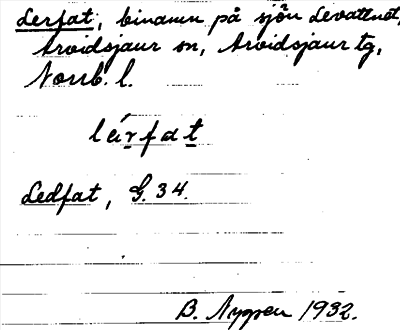 Lerfat, binamn på sjön Levattnet,
Arvidsjaur sn, Arvidsjaur tg,
Norrb. l.
leírfat
Ledfat, G. 34.
B. Nygren 1932.